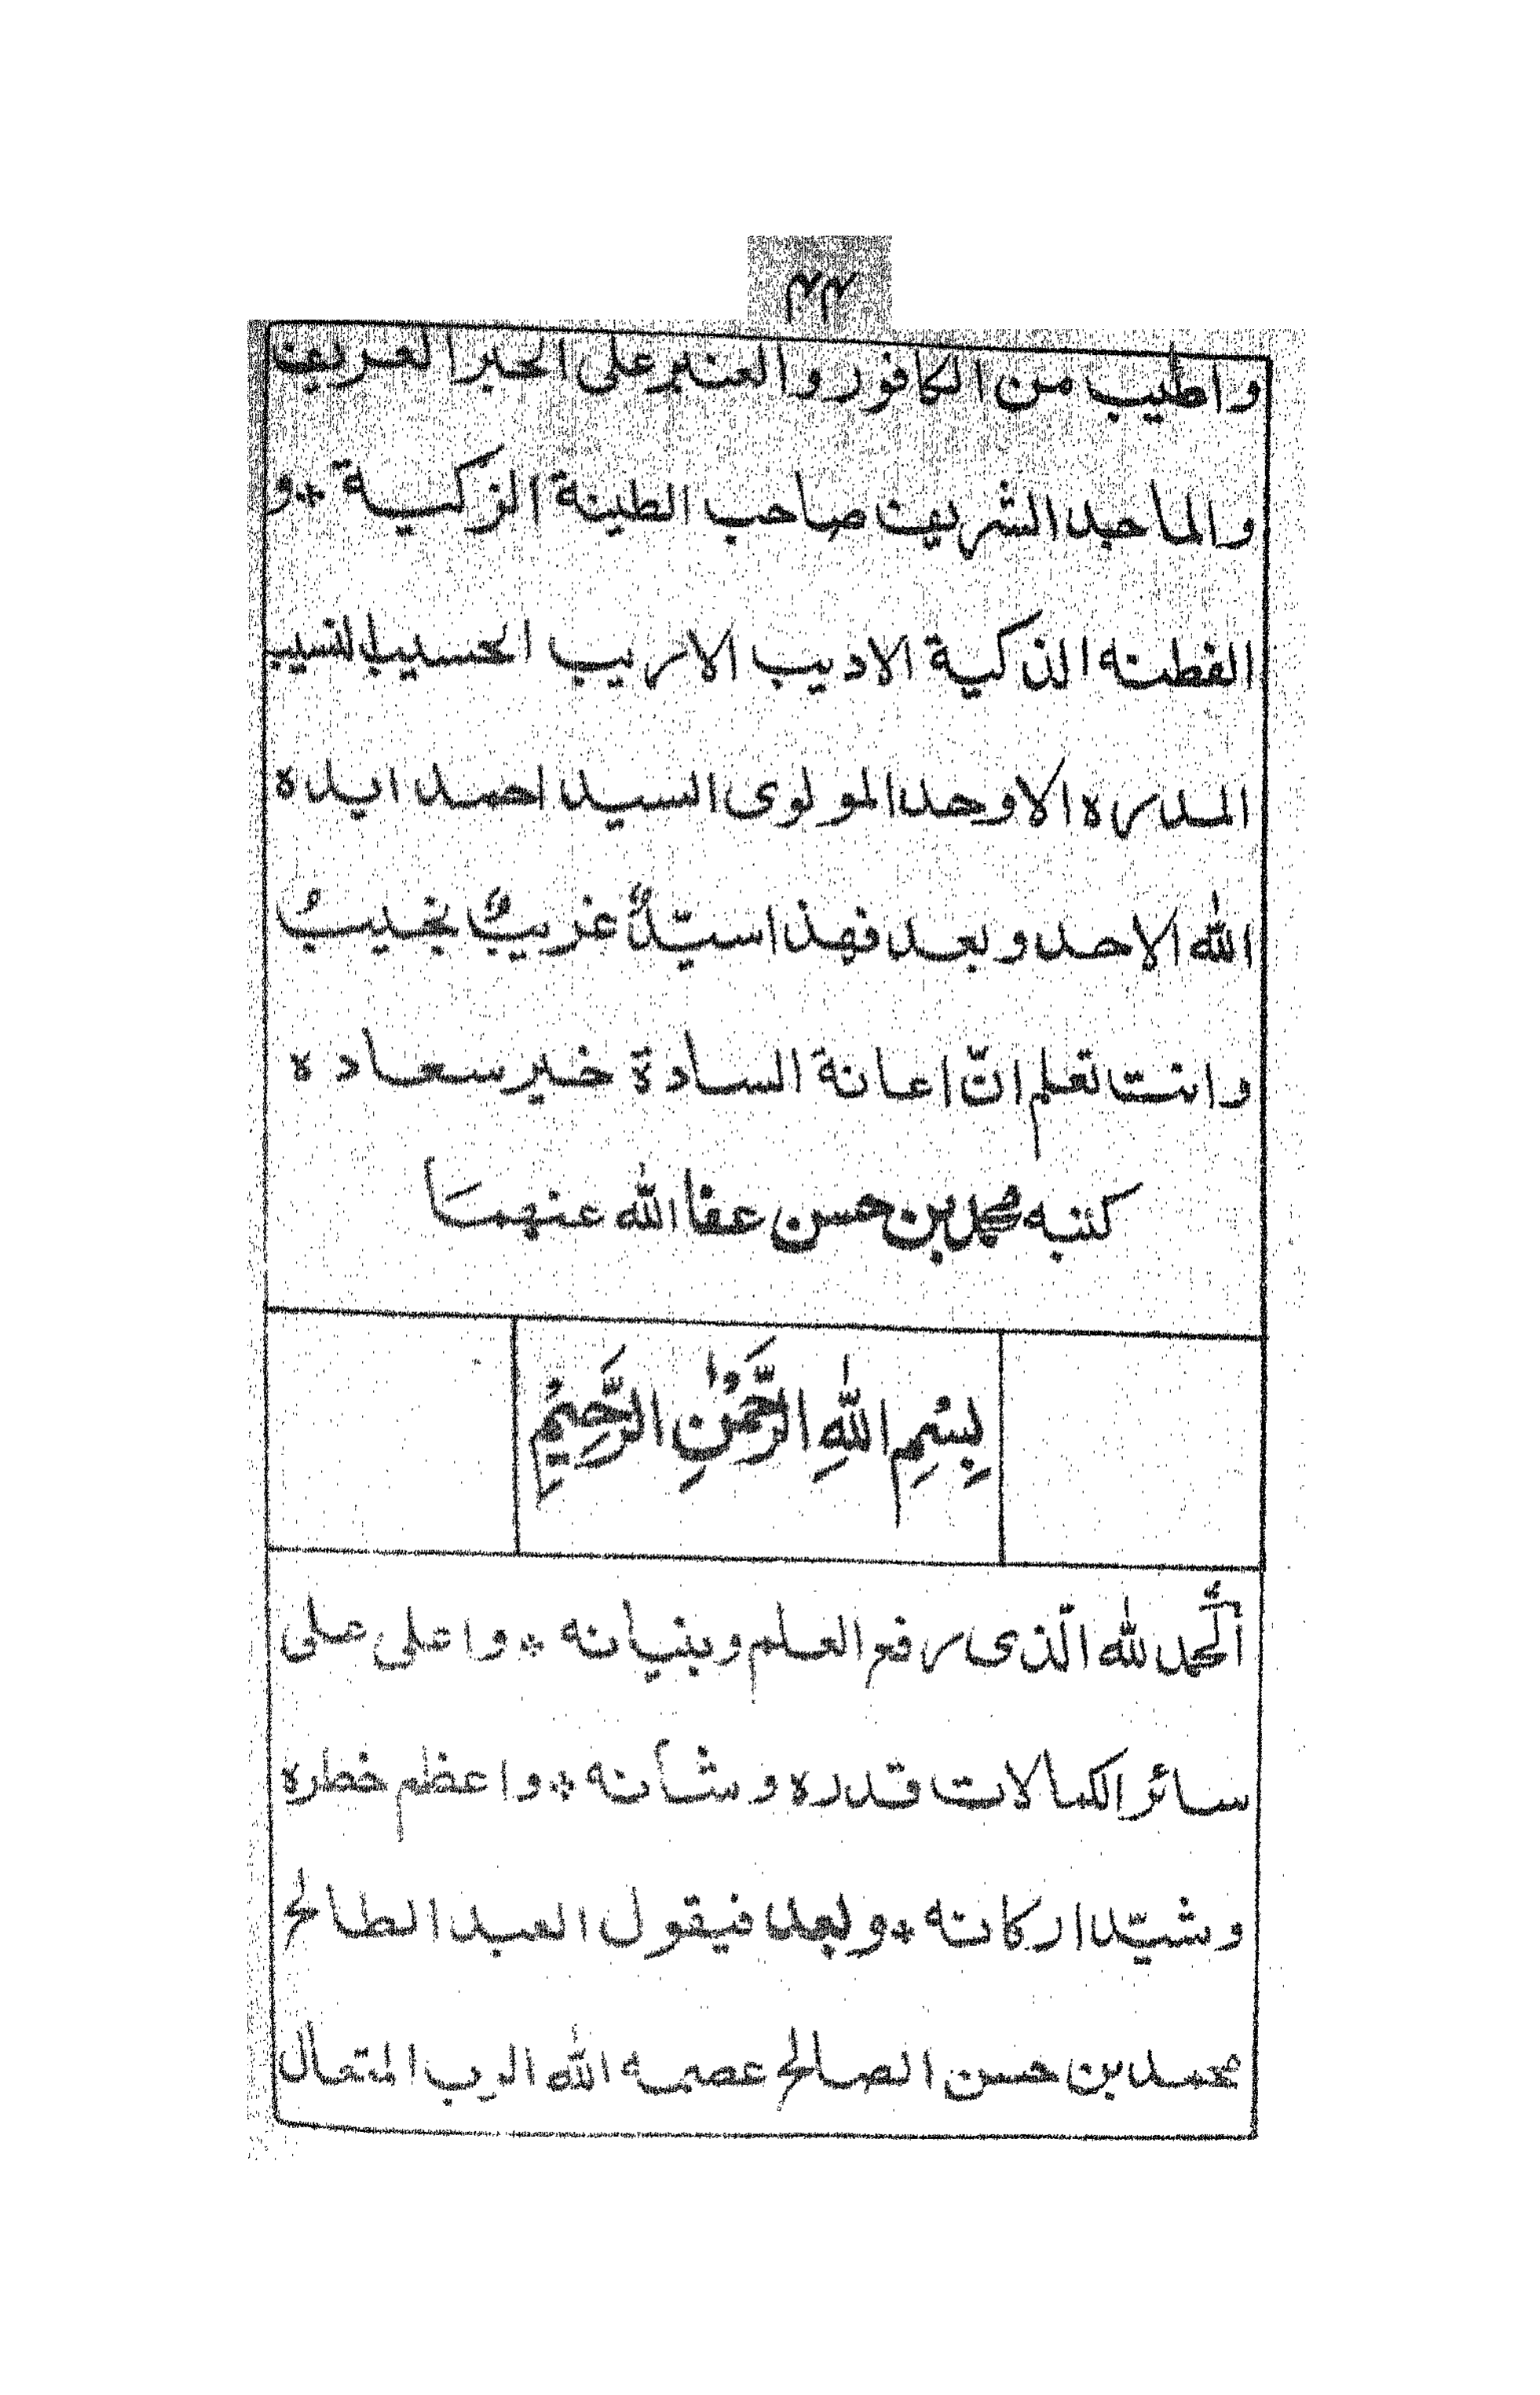 ٣٣
واطيب من الكافور والعنبر على الحبر العريف
والماجد الشريف صاحب الطينة الزكية * و
الفطنه الذكية الاديب الاريب الحسيب النسيب
المدره الاوحد المولوى السيد احمد ايده
الله الاحد وبعد فهذا سيّدٌ غريبٌ نجيبُ
وانت تعلم انّ اعانة السادة خير سعاده
كتبه محمد بن حسن عفا الله عنهما
بِسْمِ اللهِ الرَّحْمٰنِ الرَّحِيْمِ
اَلحمد لله الّذى رفع العلم وبنيانه * واعلى على
سائر الكمالات قدره وشأنه * واعظم خطره
وشيّد اركانه * وبعد فيقول العبد الطالح
محمد بن حسن الصالح عصمه الله الرب المتعال